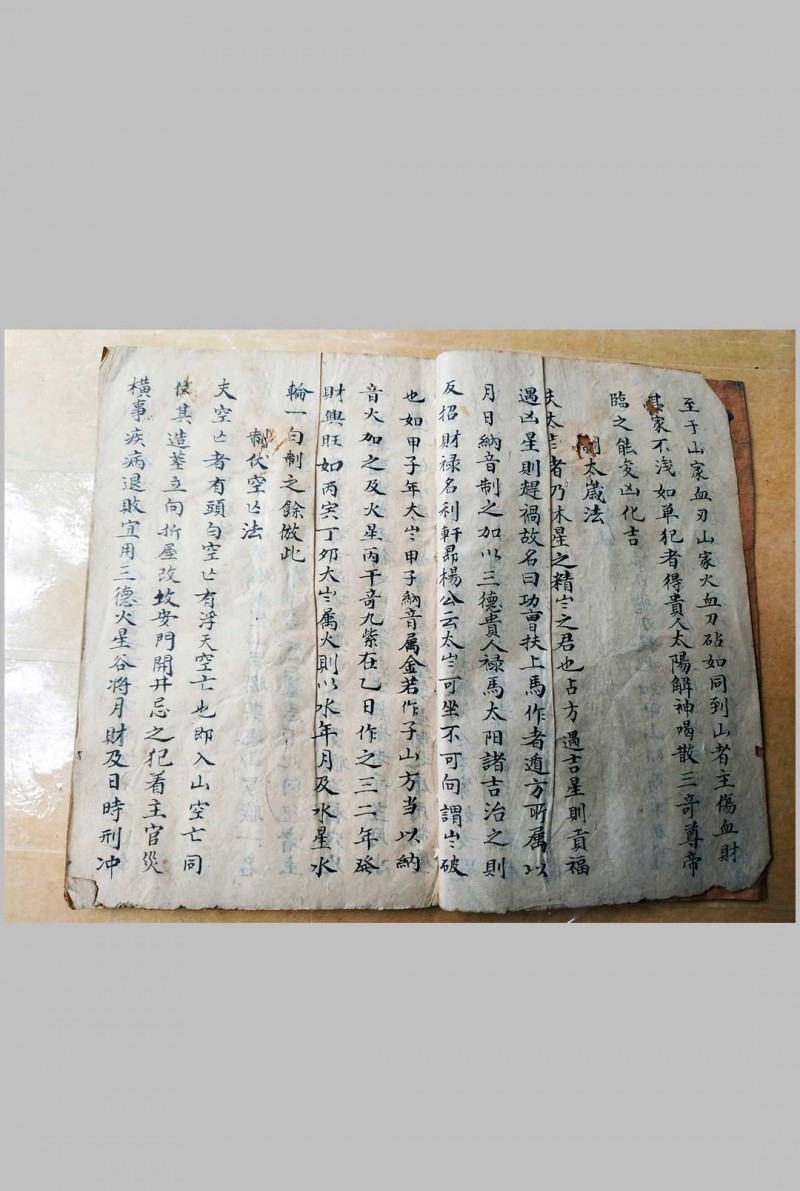 至于山家血刃山家火血刀砧如同到山者主傷血財
其家不浅如单犯者得貴人太陽解神喝散三竒尊帝
臨之能変凶化吉
制太歲法
夫太岁者乃木星之精岁之君也占方遇吉星則貢福
遇凶星則趕禍故名曰功曹扶上馬作者遁方所属以
月日納音制之加以三德貴人禄馬太阳諸吉治之則
反招財禄名利軒昂楊公云太岁可坐不可向謂岁破
也如甲子年太岁甲子納音属金若作子山方當以納
音火加之及火星丙干竒九紫在乙日作之三二年發
財興旺如丙寅丁卯太岁属火則以水年月及水星水
輪一白制之餘倣此
制伏空亡法
夫空亡者有頭白空亡有浮天空亡也即入山空亡同
使其造墓立向折屋改坟安門開井忌之犯着主官災
橫事疾病退敗宜用三德火星谷将月財及日時刑冲